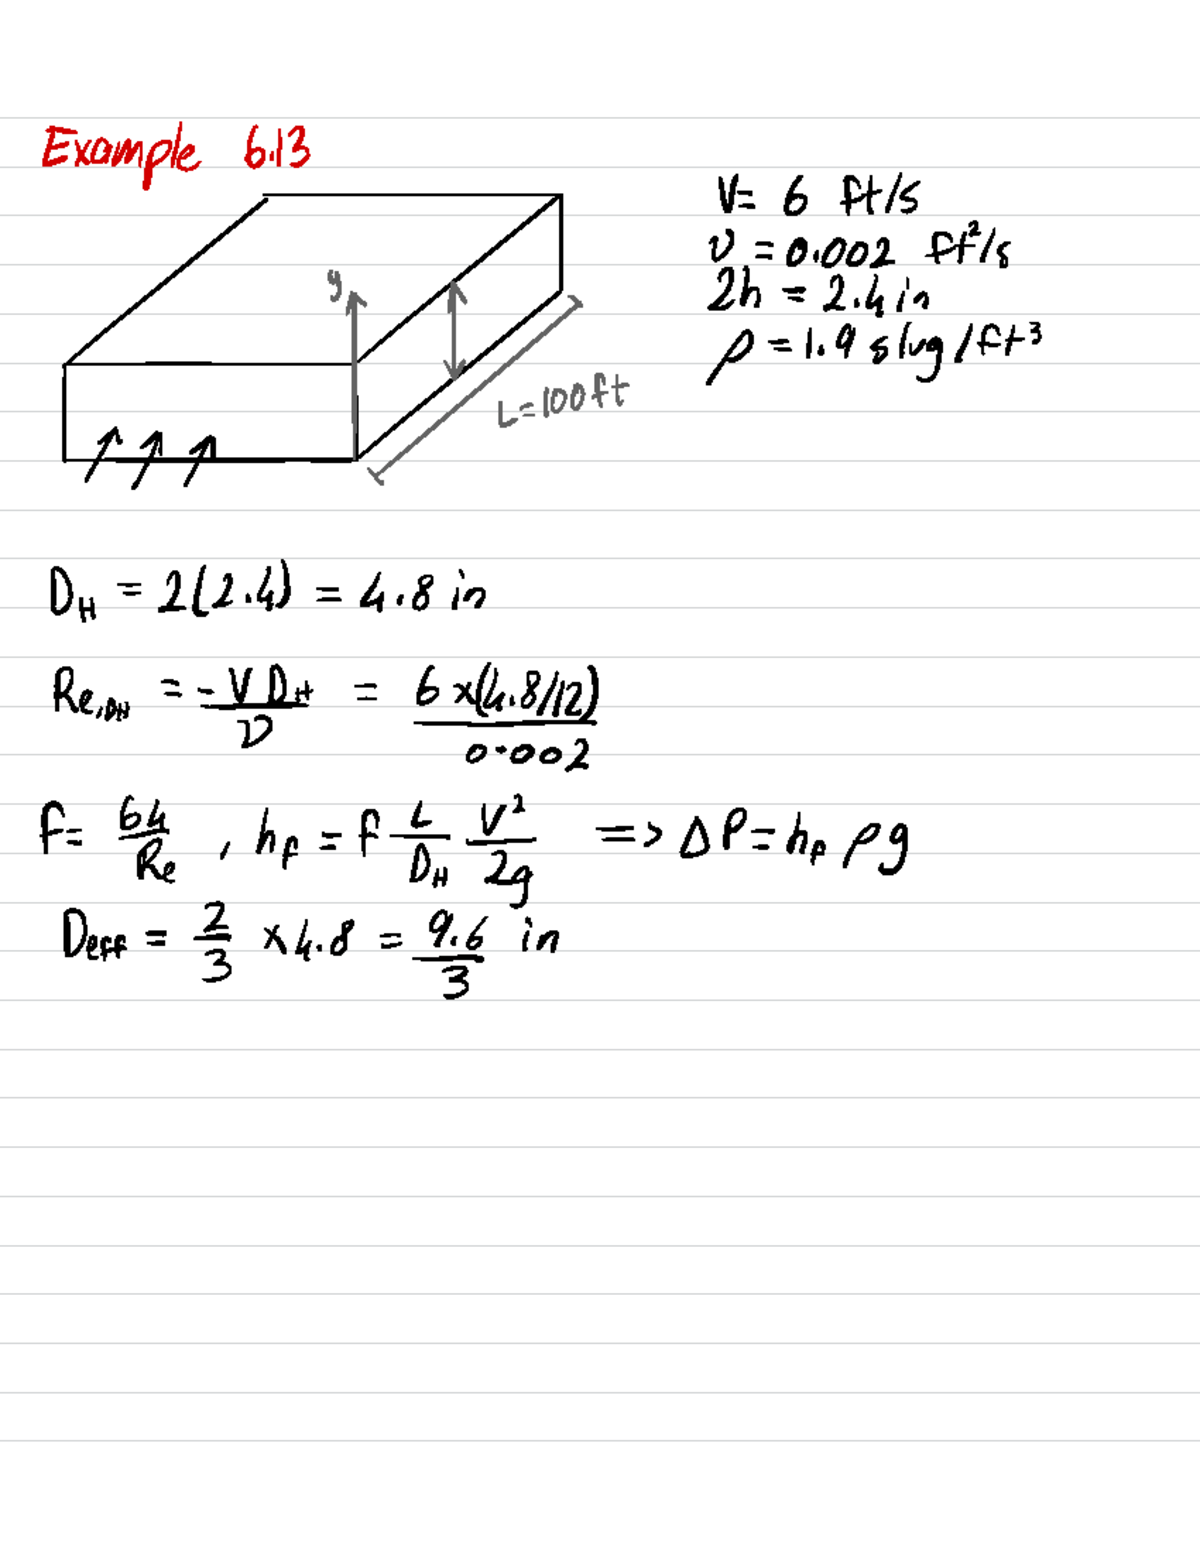 Example 6.13
V= 6 ft/s
ν = 0.002 ft²/s
2h = 2.4 in
ρ = 1.9 slug/ft³
y
L=100ft
D_H = 2(2.4) = 4.8 in
Re,DH = - V D_H / ν = 6 x(4.8/12) / 0.002
f= 64/Re , h_f = f L/D_H V²/2g => ΔP = h_f ρg
D_eff = 2/3 x4.8 = 9.6/3 in